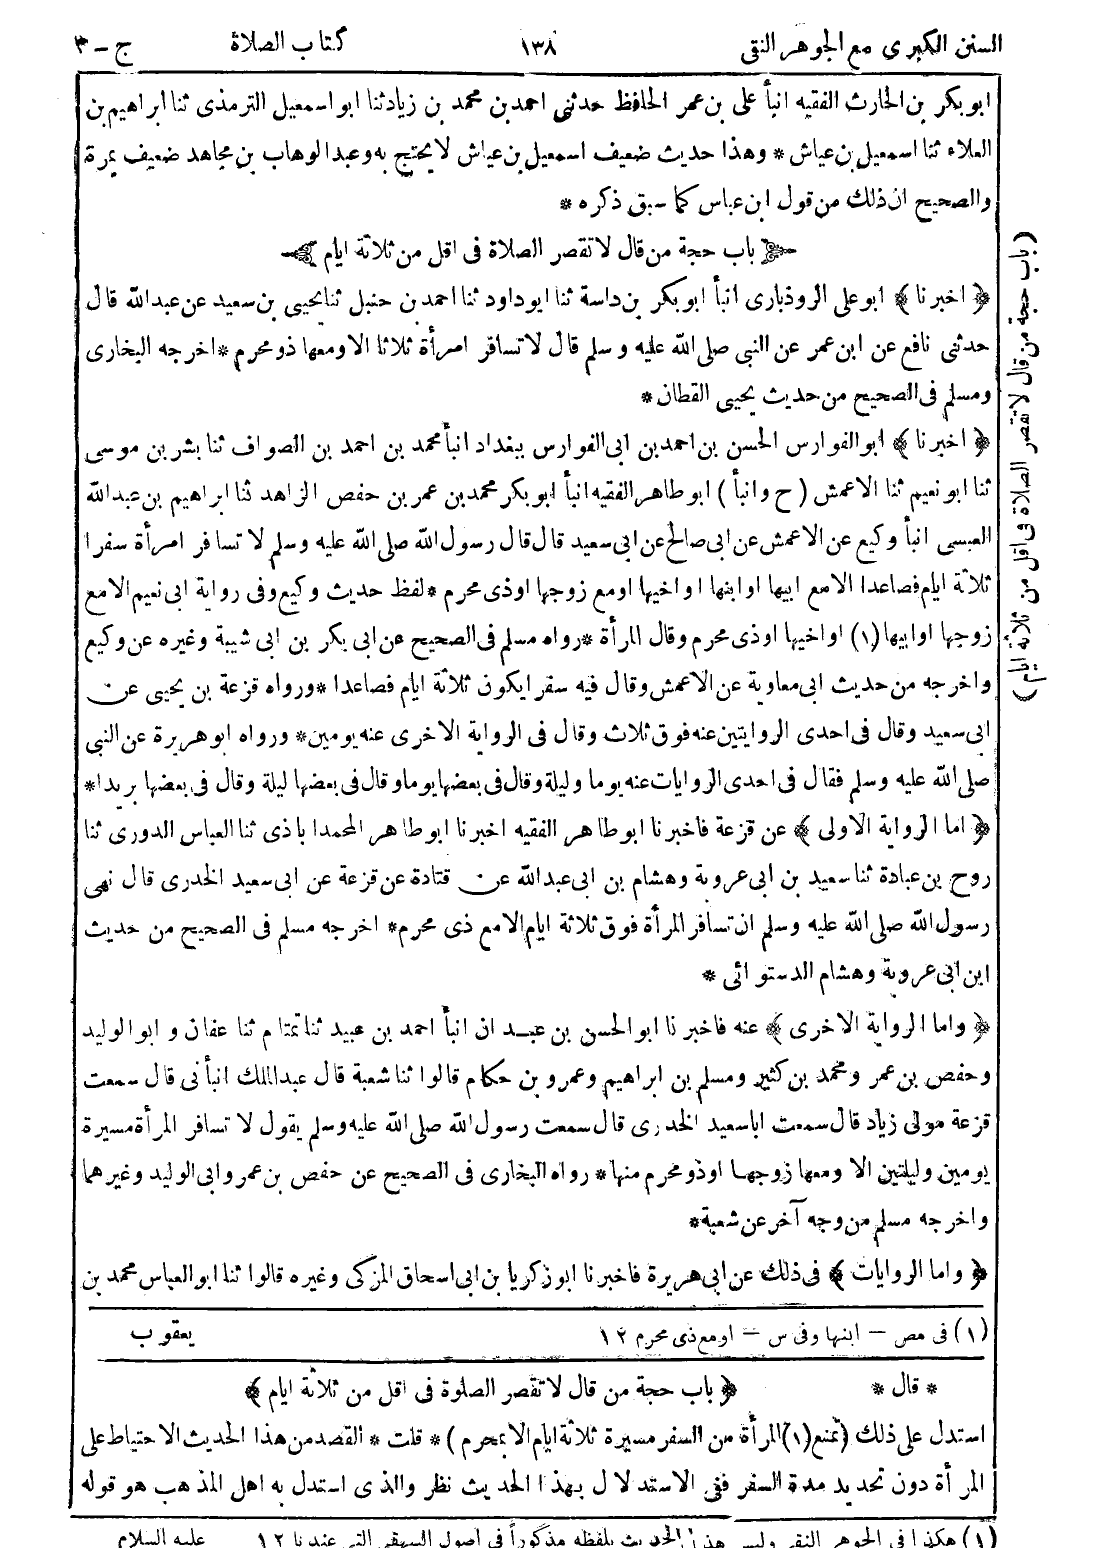 السنن الكبرى مع الجوهر النقى ١٣٨ كتاب الصلاة ج – ٣
ابو بكر بن الحارث الفقيه انبأ على بن عمر الحافظ حدثنى احمد بن محمد بن زياد ثنا ابو اسمعيل الترمذى ثنا ابراهيم بن
العلاء ثنا اسمعيل بن عياش * وهذا حديث ضعيف اسمعيل بن عياش لا يحتج به وعبد الوهاب بن مجاهد ضعيف بمرة
والصحيح ان ذلك من قول ابن عباس كما سبق ذكره *
﴿ باب حجة من قال لا تقصر الصلاة فى اقل من ثلاثة ايام ﴾
﴿ اخبرنا ﴾ ابو على الروذبارى انبأ ابو بكر بن داسة ثنا ابوداود ثنا احمد بن حنبل ثنا يحيى بن سعيد عن عبد الله قال
حدثنى نافع عن ابن عمر عن النبى صلى الله عليه وسلم قال لا تسافر امرأة ثلاثا الا ومعها ذو محرم * اخرجه البخارى
ومسلم فى الصحيح من حديث يحيى القطان *
﴿ اخبرنا ﴾ ابو الفوارس الحسن بن احمد بن ابى الفوارس ببغداد انبأ محمد بن احمد بن الصواف ثنا بشر بن موسى
ثنا ابو نعيم ثنا الاعمش ( ح وانبأ ) ابو طاهر الفقيه انبأ ابو بكر محمد بن عمر بن حفص الزاهد ثنا ابراهيم بن عبد الله
العبسى انبأ وكيع عن الاعمش عن ابى صالح عن ابى سعيد قال قال رسول الله صلى الله عليه وسلم لا تسافر امرأة سفرا
ثلاثة ايام فصاعدا الا مع ابيها او ابنها او اخيها او مع زوجها او ذى محرم * لفظ حديث وكيع وفى رواية ابى نعيم الا مع
زوجها او ابيها (١) او اخيها او ذى محرم وقال المرأة * رواه مسلم فى الصحيح عن ابى بكر بن ابى شيبة وغيره عن وكيع
واخرجه من حديث ابى معاوية عن الاعمش وقال فيه سفرا يكون ثلاثة ايام فصاعدا * ورواه قزعة بن يحيى عن
ابى سعيد وقال فى احدى الروايتين عنه فوق ثلاث وقال فى الرواية الاخرى عنه يومين * ورواه ابو هريرة عن النبى
صلى الله عليه وسلم فقال فى احدى الروايات عنه يوما وليلة وقال فى بعضها يوما وقال فى بعضها ليلة وقال فى بعضها بريدا *
﴿ اما الرواية الاولى ﴾ عن قزعة فاخبرنا ابو طاهر الفقيه اخبرنا ابو طاهر المحمدا باذى ثنا العباس الدورى ثنا
روح بن عبادة ثنا سعيد بن ابى عروبة وهشام بن ابى عبد الله عن قتادة عن قزعة عن ابى سعيد الخدرى قال نهى
رسول الله صلى الله عليه وسلم ان تسافر المرأة فوق ثلاثة ايام الا مع ذى محرم * اخرجه مسلم فى الصحيح من حديث
ابن ابى عروبة وهشام الدستوائى *
﴿ واما الرواية الاخرى ﴾ عنه فاخبرنا ابو الحسن بن عبدان انبأ احمد بن عبيد ثنا تمتام ثنا عفان و ابو الوليد
وحفص بن عمر ومحمد بن كثير ومسلم بن ابراهيم وعمرو بن حكام قالوا ثنا شعبة قال عبد الملك انبأنى قال سمعت
قزعة مولى زياد قال سمعت ابا سعيد الخدرى قال سمعت رسول الله صلى الله عليه وسلم يقول لا تسافر المرأة مسيرة
يومين وليلتين الا ومعها زوجها او ذو محرم منها * رواه البخارى فى الصحيح عن حفص بن عمر وابى الوليد وغيرهما
واخرجه مسلم من وجه آخر عن شعبة *
﴿ واما الروايات ﴾ فى ذلك عن ابى هريرة فاخبرنا ابو زكريا بن ابى اسحاق المزكى وغيره قالوا ثنا ابو العباس محمد بن
(١) فى مص – ابنها وفى س – او مع ذى محرم ١٢ يعقوب
* قال * ﴿ باب حجة من قال لا تقصر الصلوة فى اقل من ثلاثة ايام ﴾
استدل على ذلك (تمنع (١) المرأة من السفر مسيرة ثلاثة ايام الا بمحرم) * قلت * القصد من هذا الحديث الاحتياط على
المرأة دون تحديد مدة السفر ففى الاستدلال بهذا الحديث نظر والذى استدل به اهل المذهب هو قوله
(١) هكذا فى الجوهر النقى وليس هذا الحديث بلفظه مذكوراً فى اصول البيهقى التى عندنا ١٢ عليه السلام
(باب حجة من قال لا تقصر الصلاة فى اقل من ثلاثة ايام)